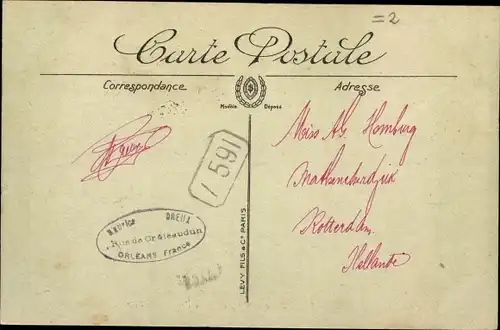 =2
Carte Postale
Correspondance
Adresse
Modèle Déposé
Meiss A. Homburg
Mathenesserdijk
Rotterdam.
Hollande
1591
MAURICE DREUX
Rue de Châteaudun
ORLÉANS France
LEVY FILS & Cie PARIS